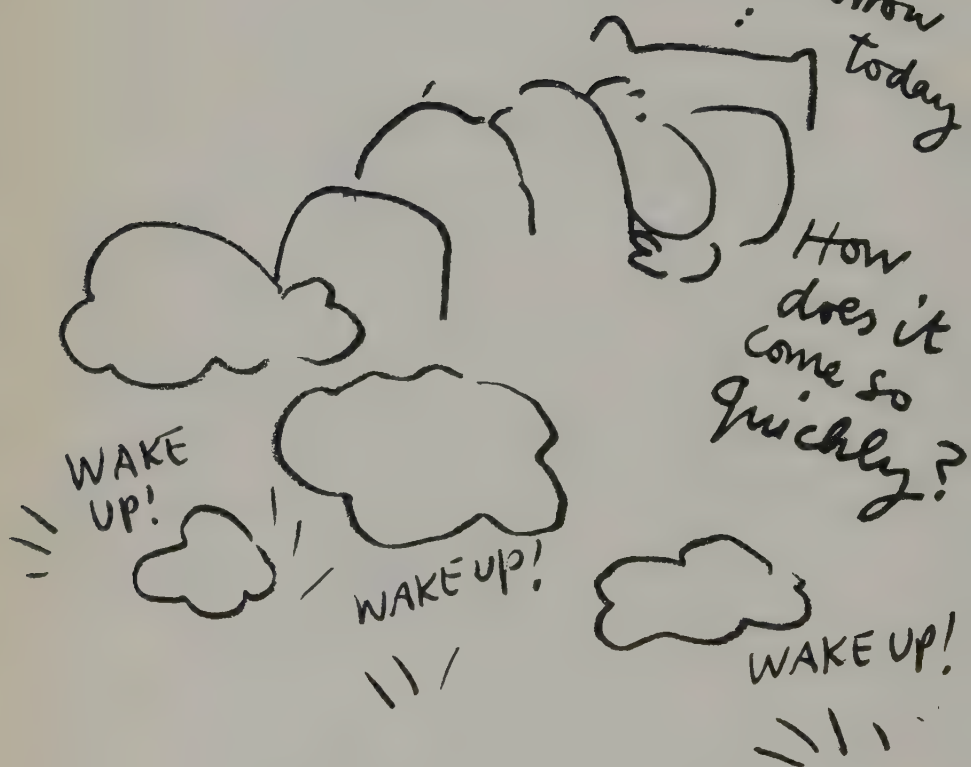 today
How
does it
come so
quickly?
WAKE
UP!
WAKE UP!
WAKE UP!